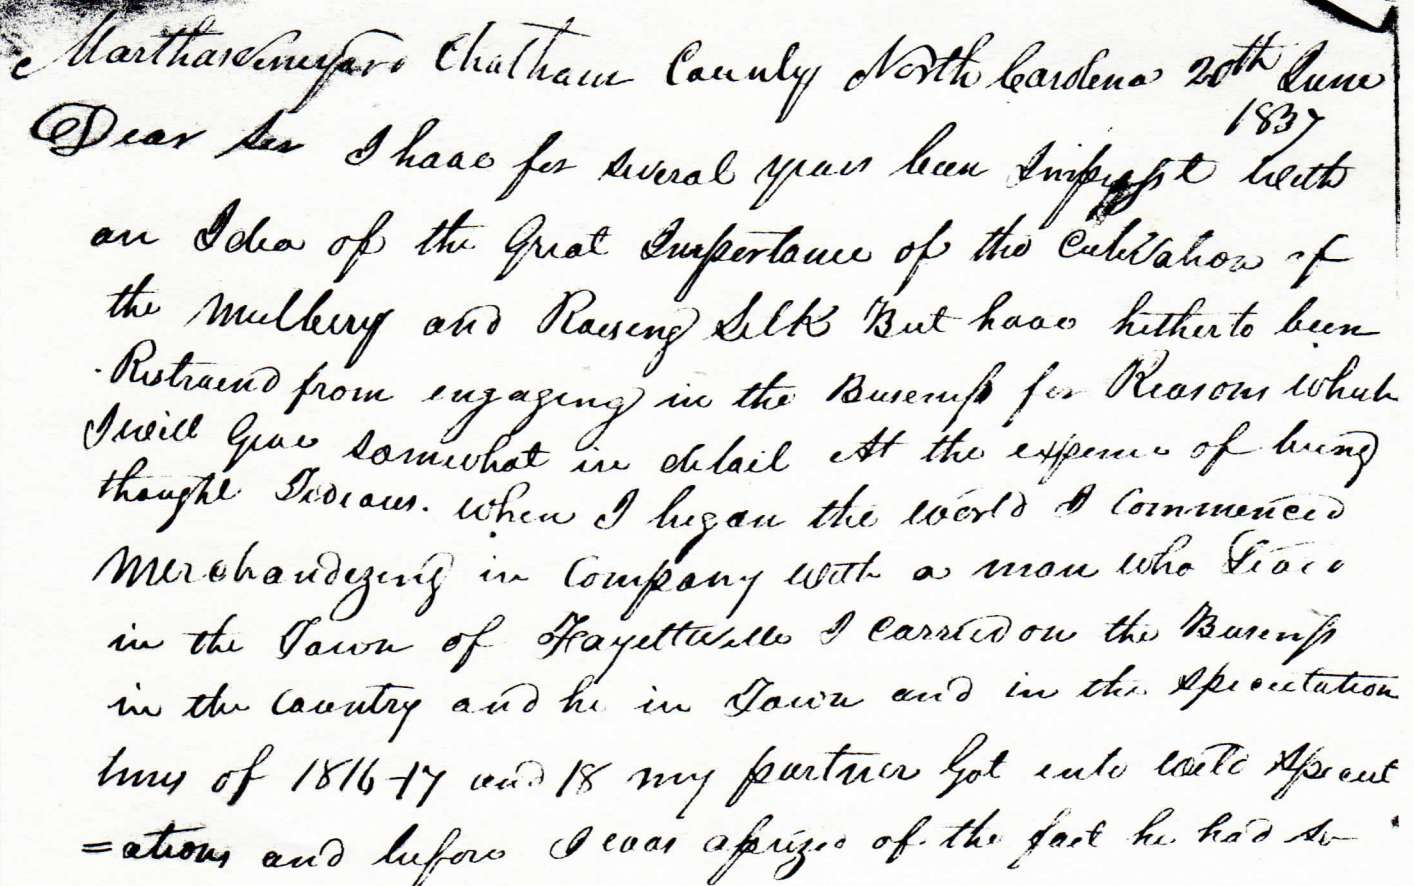 Marthasvineyard Chatham County North Carolena 20th June
1837
Dear Ser I have for several years been Impresst with
an Idea of the Great Importance of the Cultivation of
the Mulberry and Raising Silk But have hitherto been
Restraind from engageing in the Buseness for Reasons which
I will Give somewhat in detail At the expence of being
thought Tedious. When I began the world I Commenced
Merchandizeing in Company with a man who Lived
in the Town of Fayetteville I carried on the Buseness
in the Country and he in Town and in the Speculation
times of 1816-17 and 18 my partner Got into wild Specul
=ations and before I was apprized of the fact he had so